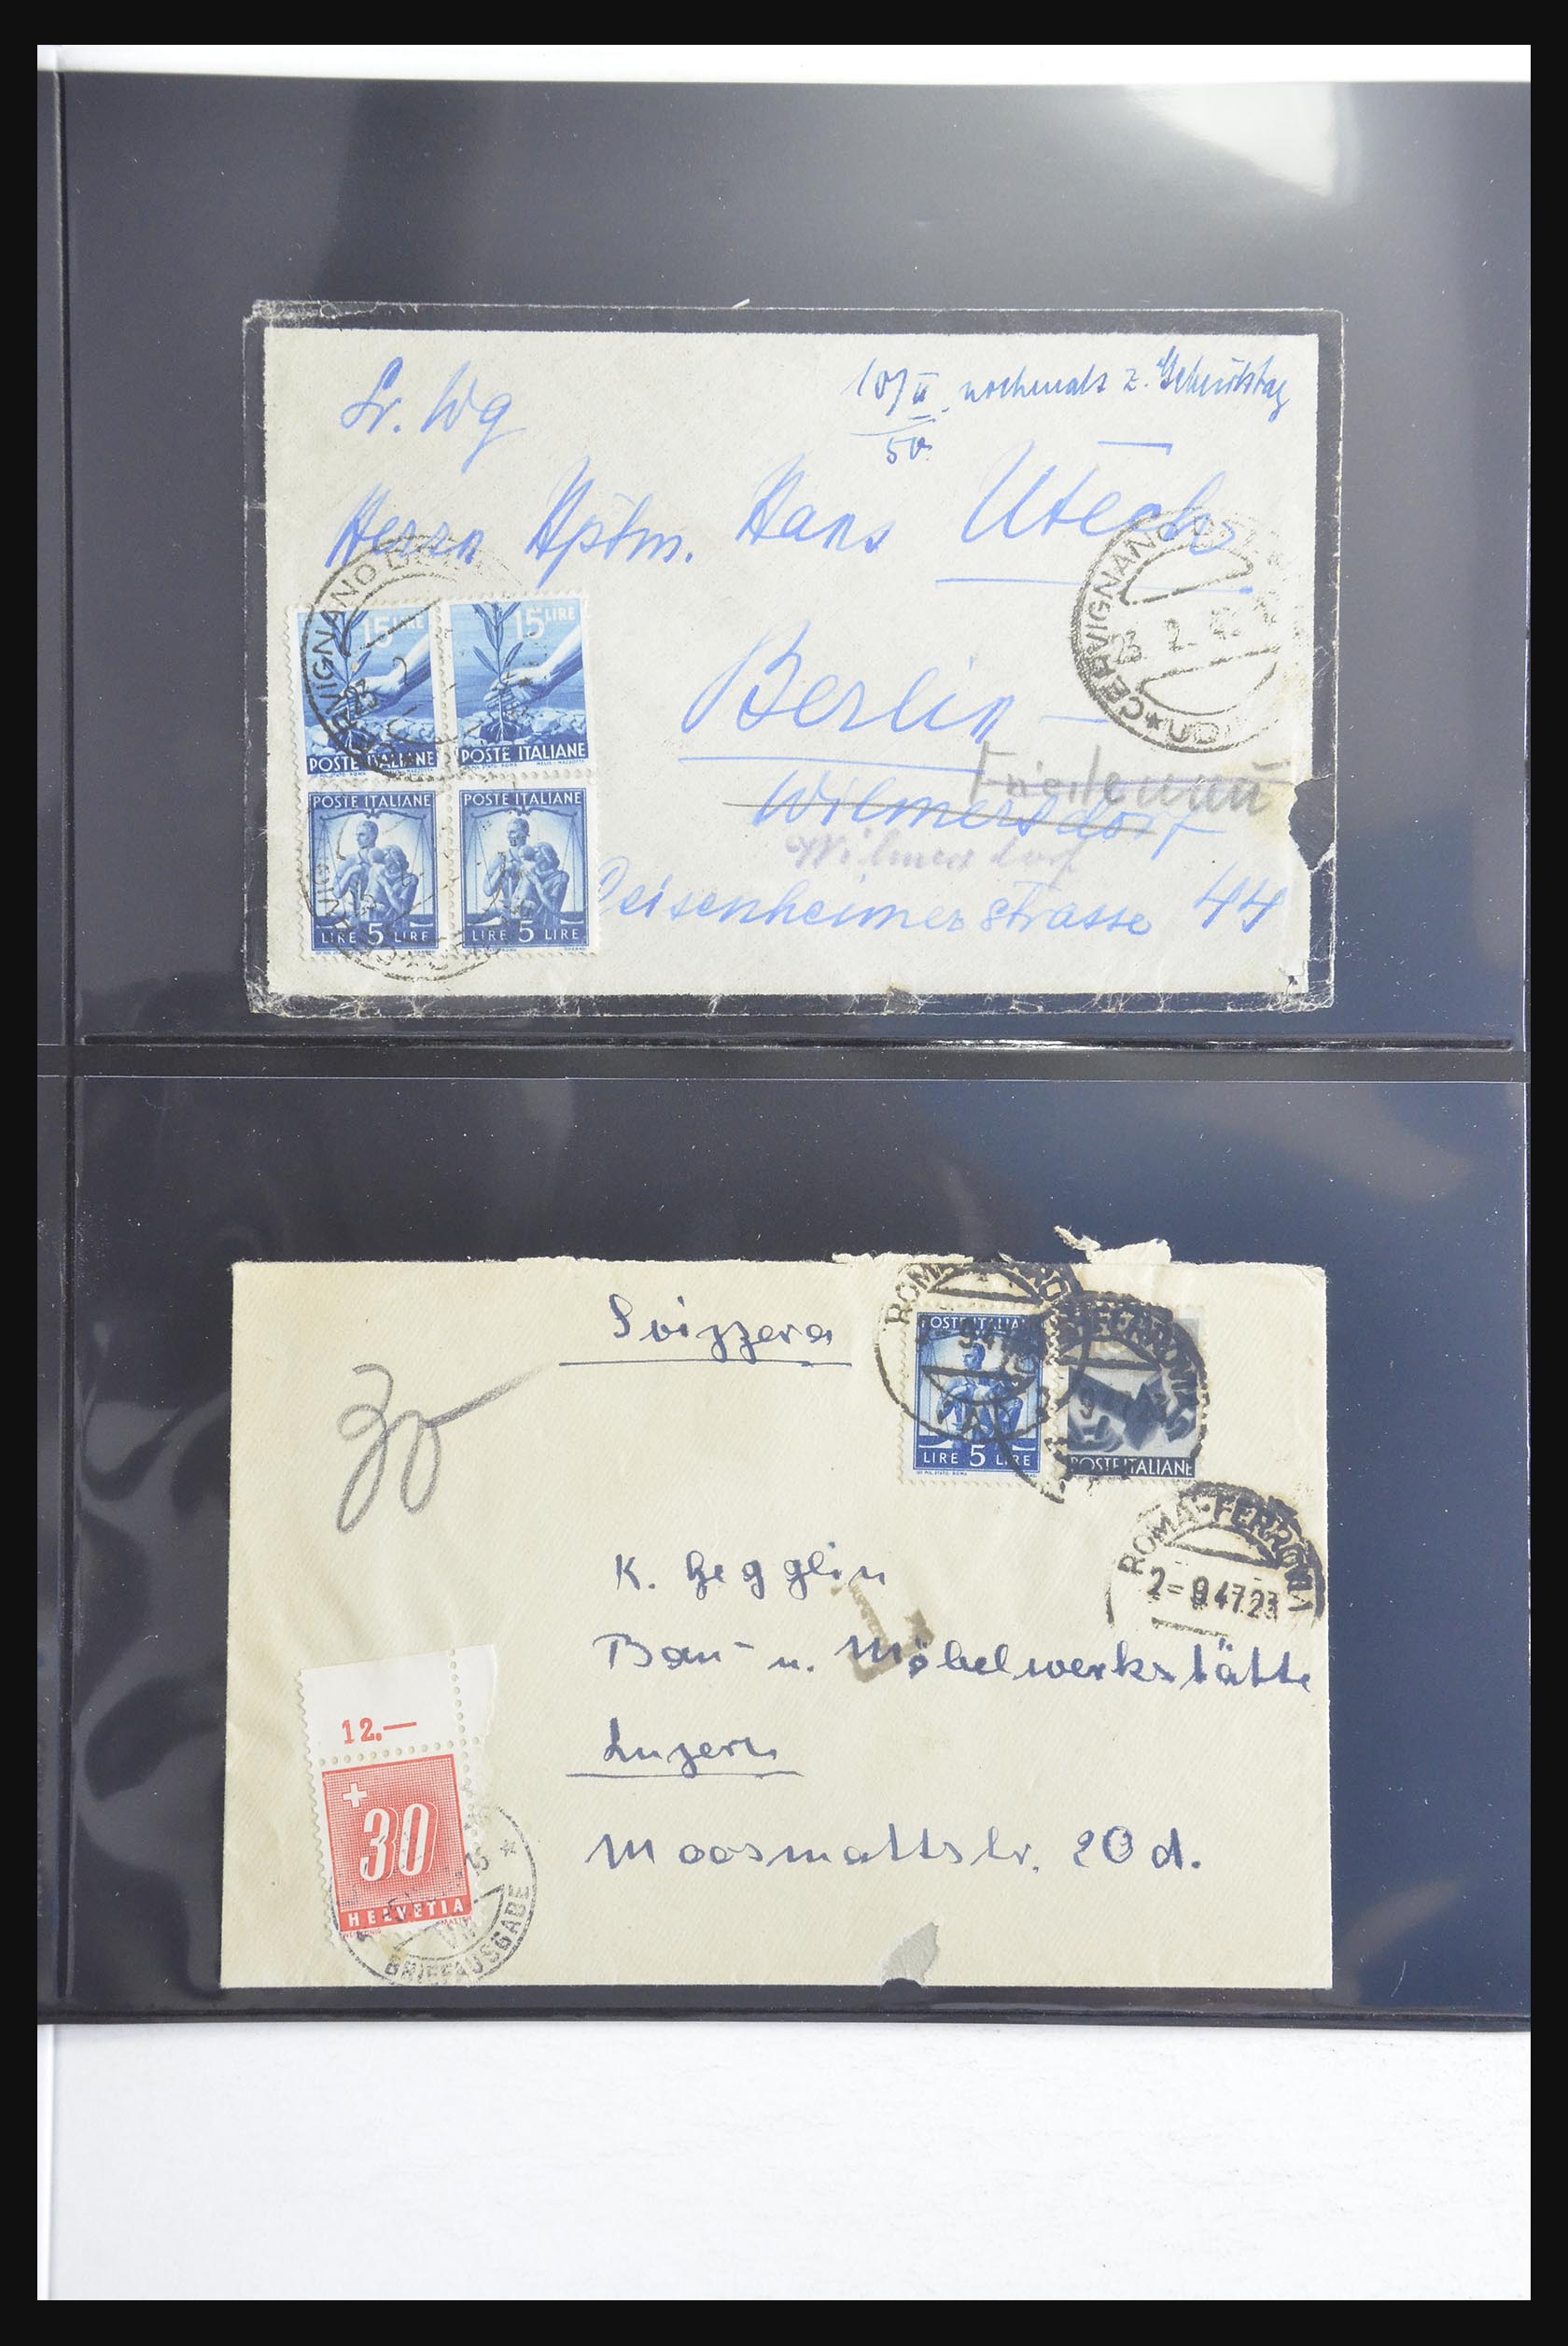 10/II nochmals z. Geburtstag
50.
Sr. Wg
Herrn Hptm. Hans Utech
Berlin –
Friedenau
Wilmersdorf
Wilmersdorf
Deisenheimerstrasse 44
CERVIGNANO
23. 2.
15 LIRE
15 LIRE
POSTE ITALIANE
POSTE ITALIANE
POSTE ITALIANE
POSTE ITALIANE
LIRE 5 LIRE
LIRE 5 LIRE
CERVIGNANO
23
Svizzera
30
ROMA
POSTE ITALIANE
LIRE 5 LIRE
POSTE ITALIANE
ROMA-FERROVIA
2-9 47.23
K. Gegglin
Bau- u. Möbelwerkstätte
Luzern
Moosmattstr. 20 d.
T
12.—
30
HELVETIA
BRIEFAUSGABE